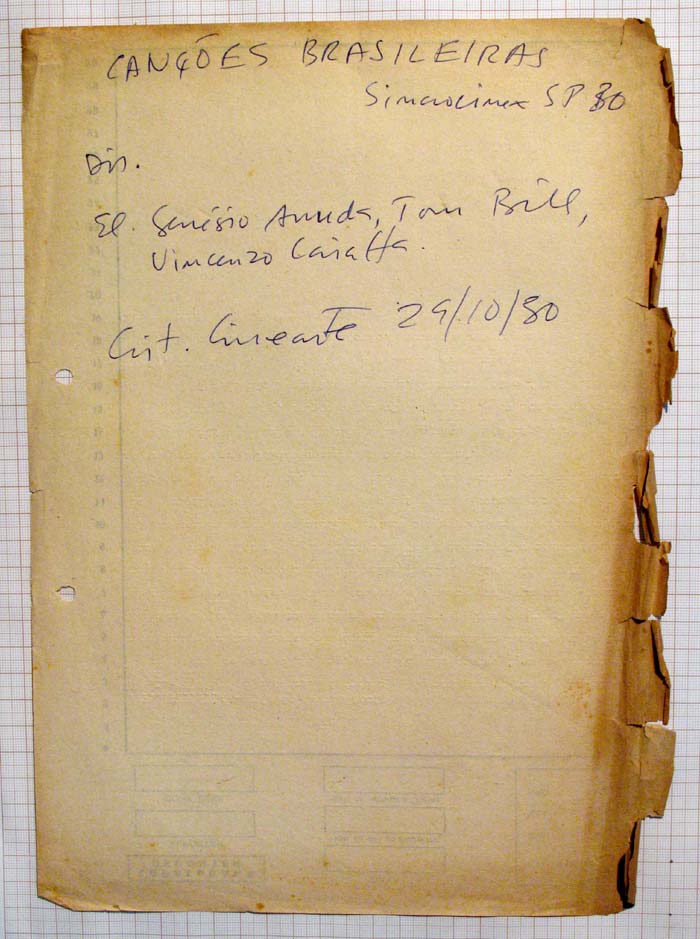 CANÇÕES BRASILEIRAS
Sincrocinex SP 30
Dir.
El. Genésio Arruda, Tom Bill,
Vincenzo Caiaffa.
Crít. Cinearte 29/10/30